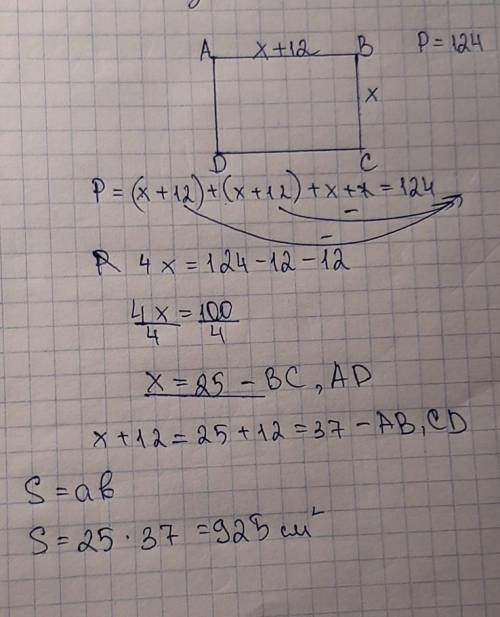 A x+12 B P=124
x
D C
P=(x+12)+(x+12)+x+x=124
-
-
4x=124-12-12
4x/4=100/4
x=25-BC, AD
x+12=25+12=37-AB, CD
S=ab
S=25·37=925 см²